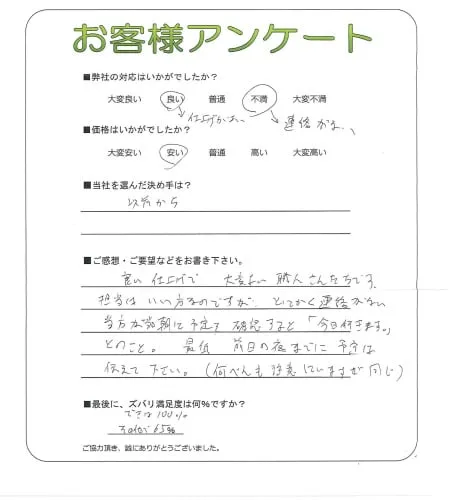 お客様アンケート
■弊社の対応はいかがでしたか？
大変良い 良い 普通 不満 大変不満
仕上げが良い 連絡がない
■価格はいかがでしたか？
大変安い 安い 普通 高い 大変高い
■当社を選んだ決め手は？
以前から
■ご感想・ご要望などをお書き下さい。
良い仕上げで 大変良い職人さんたちです。
担当は いい方なのですが、とにかく連絡がない
当方が当朝に予定を確認すると「今日行きます。」
とのこと。 最低 前日の夜までに予定は
伝えて下さい。（何べんも注意していますが同じ）
■最後に、ズバリ満足度は何％ですか？
できは100%
その他で65%
ご協力頂き、誠にありがとうございました。